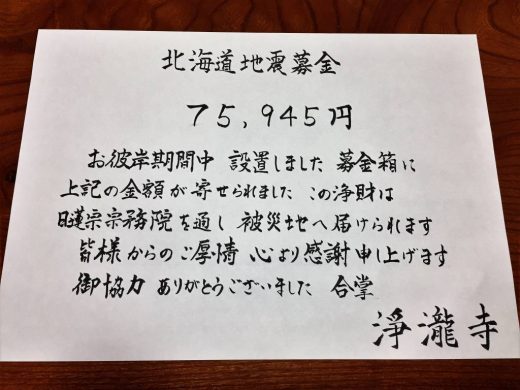 北海道地震募金
75,945円
お彼岸期間中 設置しました 募金箱に
上記の金額が寄せられました この浄財は
日蓮宗宗務院を通し 被災地へ届けられます
皆様からのご厚情 心より感謝申し上げます
御協力 ありがとうございました 合掌
淨瀧寺